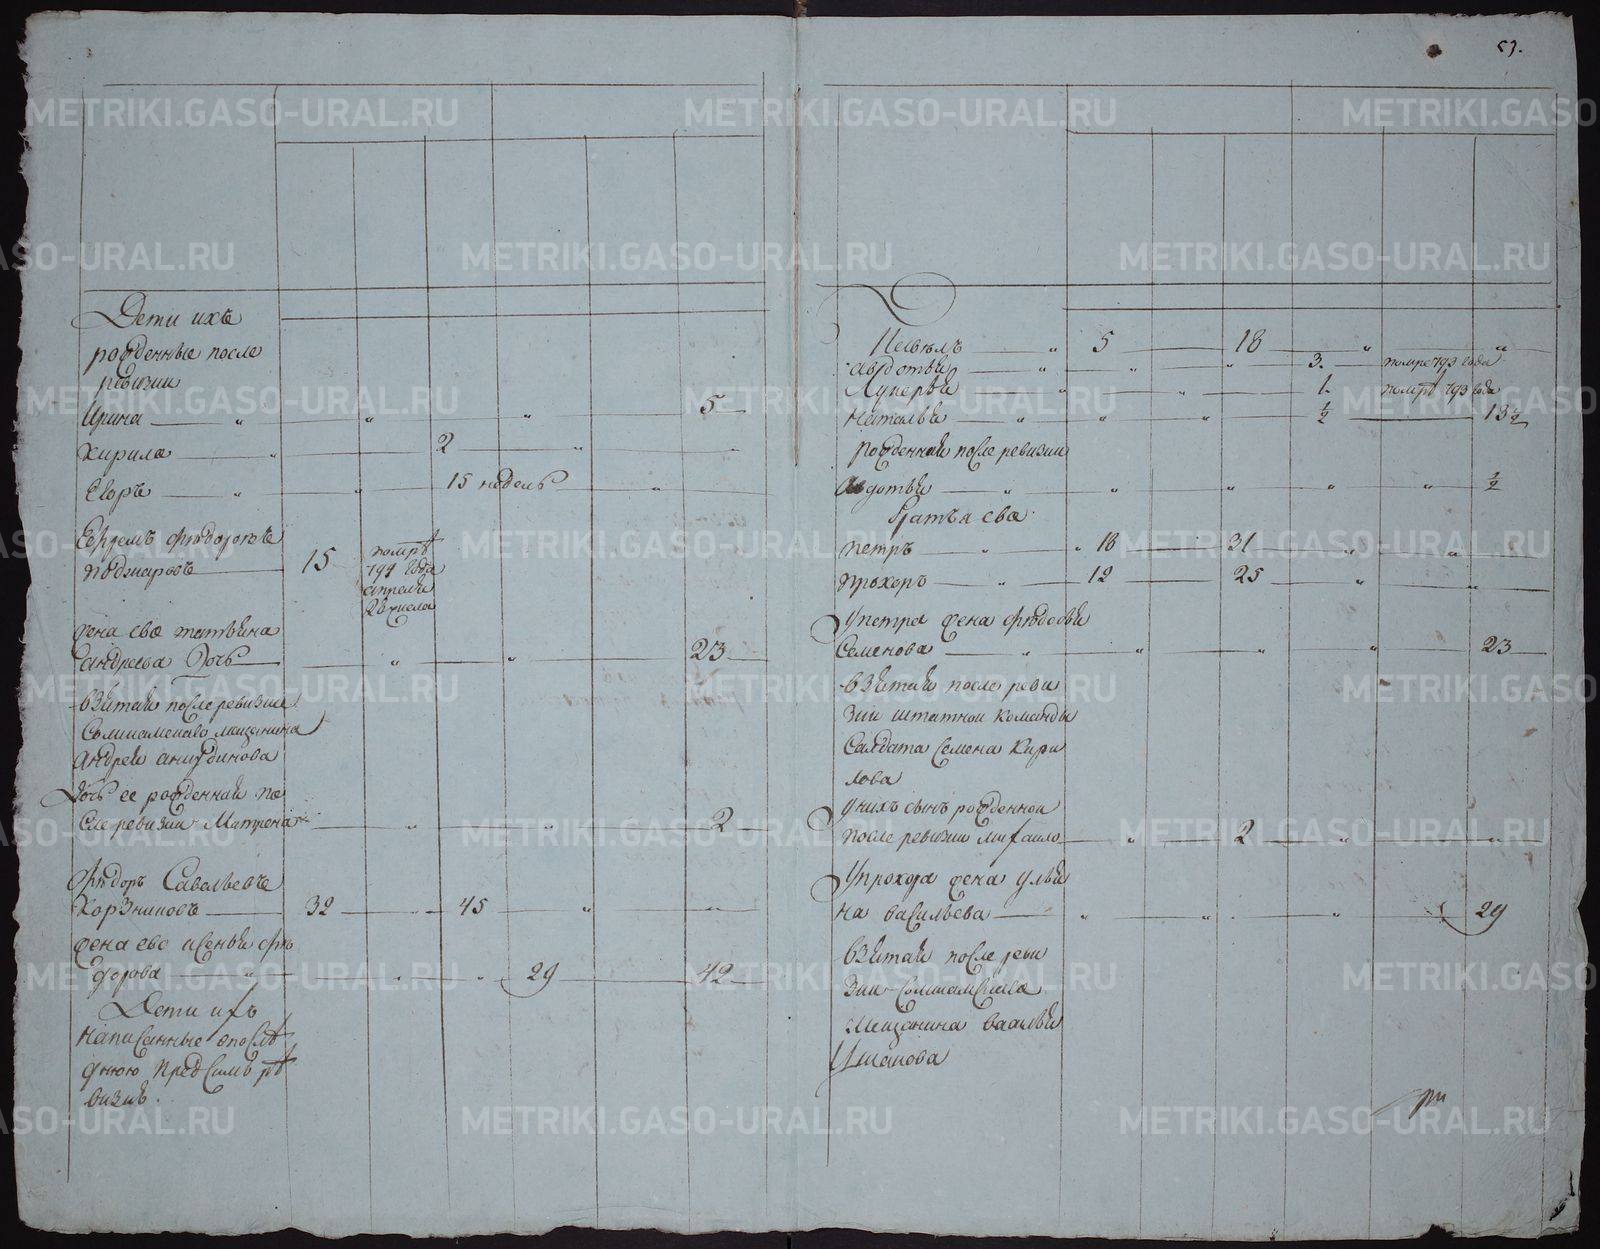 53.
Дети ихъ
рожденные после
ревизии
Ирина — " — " — " — 5
Кирила — " — 2 — "
Егоръ — " — " — 15 недель — "
Ефремъ Фѣдоровъ
15
помръ
791 года
апреля
28 числа
жена ево татьяна
андреева дочь — " — " — 23
взятая после ревизии
мещанина
андрея
дочь ее рожденная по
сле ревизии Матрена — " — " — 2
Фѣдоръ Савельевъ
— 32 — " — 45 — " — "
жена ево Ксенья Фѣ
дорова — " — " — " — 29 — 42
Дети ихъ
написанные впослѣ
днюю предъ симъ ре
визию.
Павелъ — " 5 — 18 — " — "
авдотья — " — " — " — 3. — помре 793 года
Лукерья — " — " — 1. — помрѣ 793 года
Наталья — " — " — " — ½ — 13½
рожденная после ревизии
авдотья — " — " — " — " — " — ½
братья ево
петръ — " — " 18 — 31 — " — "
прохоръ — " — 12 — 25 — " — "
у петра жена Фѣдосья
Семенова — " — " — " — " — 23
взятая после реви
зии штатной команды
Салдата Семена Кири
лова
у нихъ сынъ рожденной
после ревизии михаило — " — 2 — " — "
У прохора жена улья
на васильева — " — " — " — 29
взятая после реви
зии
мещанина василья
Ушакова
METRIKI.GASO-URAL.RU